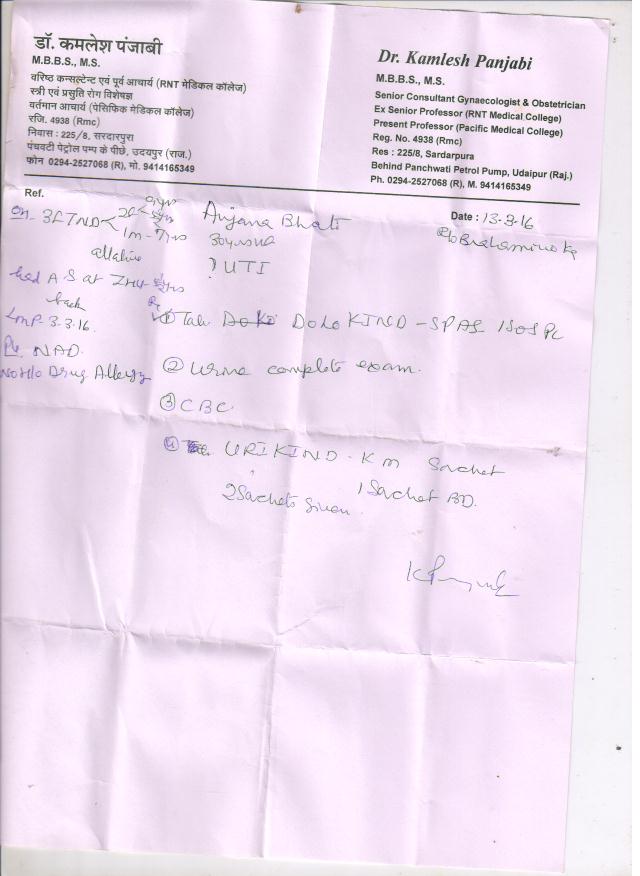 डॉ. कमलेश पंजाबी
M.B.B.S., M.S.
वरिष्ठ कन्सल्टेन्ट एवं पूर्व आचार्य (RNT मेडिकल कॉलेज)
स्त्री एवं प्रसुति रोग विशेषज्ञ
वर्तमान आचार्य (पेसिफिक मेडिकल कॉलेज)
रजि. 4938 (Rmc)
निवास : 225/8, सरदारपुरा
पंचवटी पेट्रोल पम्प के पीछे, उदयपुर (राज.)
फोन 0294-2527068 (R), मो. 9414165349
Dr. Kamlesh Panjabi
M.B.B.S., M.S.
Senior Consultant Gynaecologist & Obstetrician
Ex Senior Professor (RNT Medical College)
Present Professor (Pacific Medical College)
Reg. No. 4938 (Rmc)
Res : 225/8, Sardarpura
Behind Panchwati Petrol Pump, Udaipur (Raj.)
Ph. 0294-2527068 (R), M. 9414165349
Ref.
Date : 13-3-16
Anjana Bhati
? UTI
3FTND
1m-7yrs
all alive
had A S at
back
LMP-3.3.16.
NAD
Drug Allergy
① Tab DOLOKIND-SPAS 1 SOS
② Urine complete exam.
③ CBC
④ URIKIND-KM Sachet
2 Sachets given
1 Sachet BD.